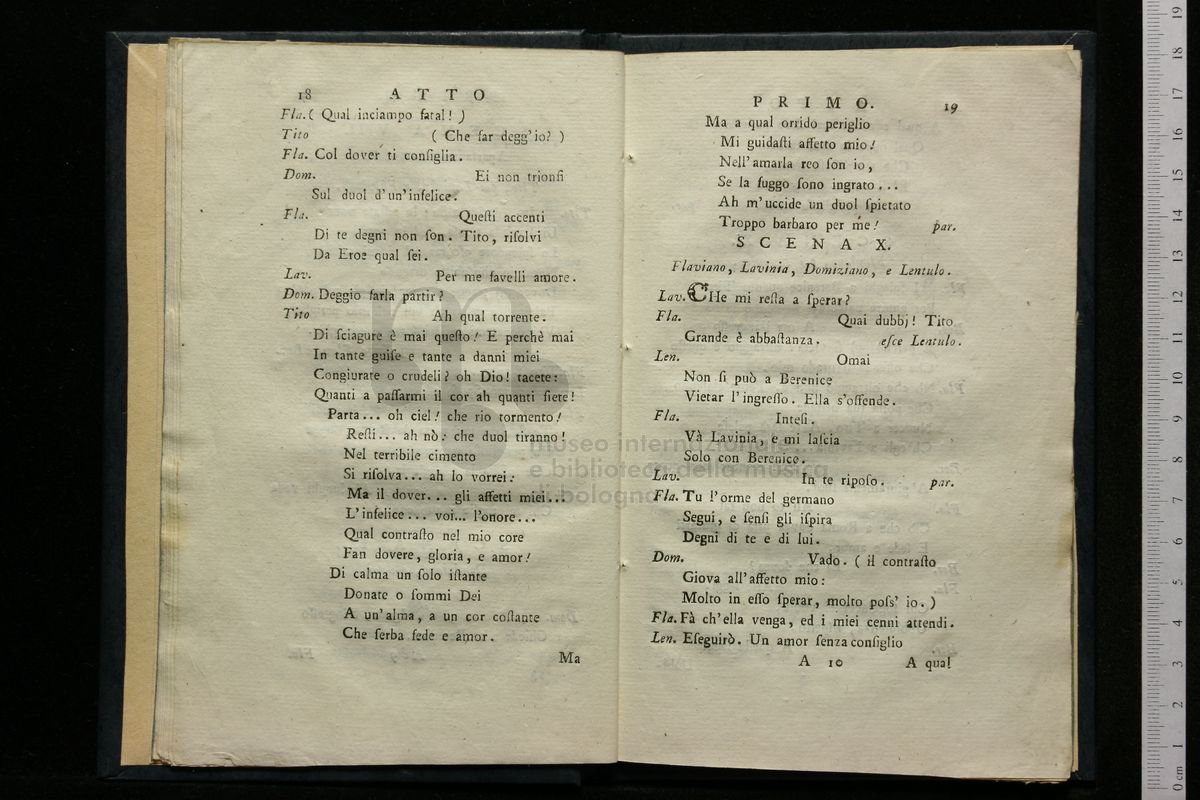 18 ATTO
Fla. ( Qual inciampo fatal! )
Tito ( Che far degg'io? )
Fla. Col dover ti conſiglia.
Dom. Ei non trionfi
Sul duol d'un'infelice.
Fla. Queſti accenti
Di te degni non ſon. Tito, riſolvi
Da Eroe qual ſei.
Lav. Per me favelli amore.
Dom. Deggio farla partir?
Tito Ah qual torrente.
Di ſciagure è mai queſto! E perchè mai
In tante guiſe e tante a danni miei
Congiurate o crudeli? oh Dio! tacete:
Quanti a paſſarmi il cor ah quanti ſiete!
Parta... oh ciel! che rio tormento!
Reſti... ah nò: che duol tiranno!
Nel terribile cimento
Si riſolva... ah lo vorrei:
Ma il dover... gli affetti miei...
L'infelice... voi... l'onore...
Qual contraſto nel mio core
Fan dovere, gloria, e amor!
Di calma un ſolo iſtante
Donate o ſommi Dei
A un'alma, a un cor coſtante
Che ſerba fede e amor.
Ma
PRIMO. 19
Ma a qual orrido periglio
Mi guidaſti affetto mio!
Nell'amarla reo ſon io,
Se la fuggo ſono ingrato...
Ah m'uccide un duol ſpietato
Troppo barbaro per me! par.
SCENA X.
Flaviano, Lavinia, Domiziano, e Lentulo.
Lav. CHe mi reſta a ſperar?
Fla. Quai dubbj! Tito
Grande è abbaſtanza. eſce Lentulo.
Len. Omai
Non ſi può a Berenice
Vietar l'ingreſſo. Ella s'offende.
Fla. Inteſi.
Và Lavinia, e mi laſcia
Solo con Berenice.
Lav. In te ripoſo. par.
Fla. Tu l'orme del germano
Segui, e ſenſi gli iſpira
Degni di te e di lui.
Dom. Vado. ( il contraſto
Giova all'affetto mio:
Molto in eſſo ſperar, molto poſs' io. )
Fla. Fà ch'ella venga, ed i miei cenni attendi.
Len. Eſeguirò. Un amor ſenza conſiglio
A 10 A qual
museo internazionale
e biblioteca della musica
di bologna
0 cm 1 2 3 4 5 6 7 8 9 10 11 12 13 14 15 16 17 18 19